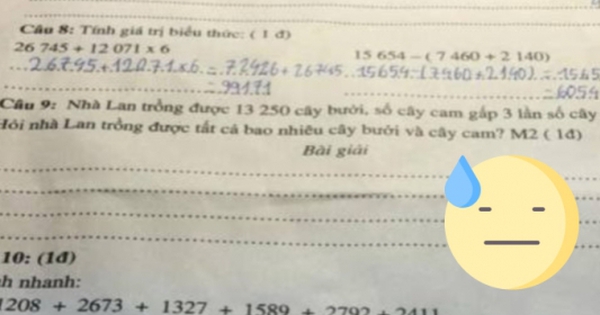 Câu 8: Tính giá trị biểu thức: ( 1 đ)
26 745 + 12 071 x 6
15 654 – ( 7 460 + 2 140)
26745+12071x6 = 72426 + 26745
= 99171
15654-(7460+2140) = 1565
= 6054
Câu 9: Nhà Lan trồng được 13 250 cây bưởi, số cây cam gấp 3 lần số cây
Hỏi nhà Lan trồng được tất cả bao nhiêu cây bưởi và cây cam? M2 ( 1đ)
Bài giải
10: (1đ)
nh nhanh:
1208 + 2673 + 1327 + 1589 + 2792 + 2411